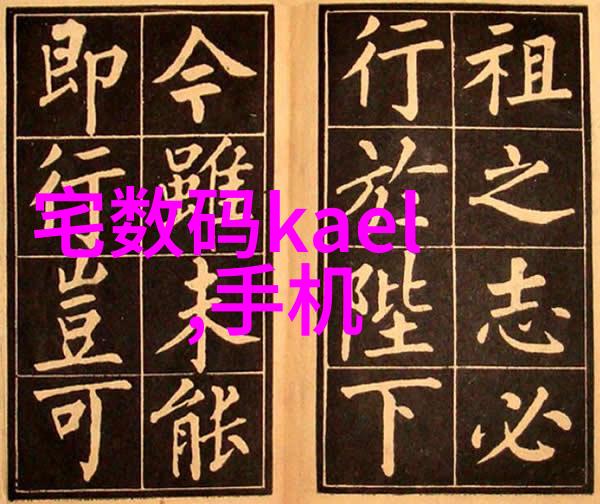 祖之志必
行於陛下
今雖未能
即行豈可
宅数码kael
,手机